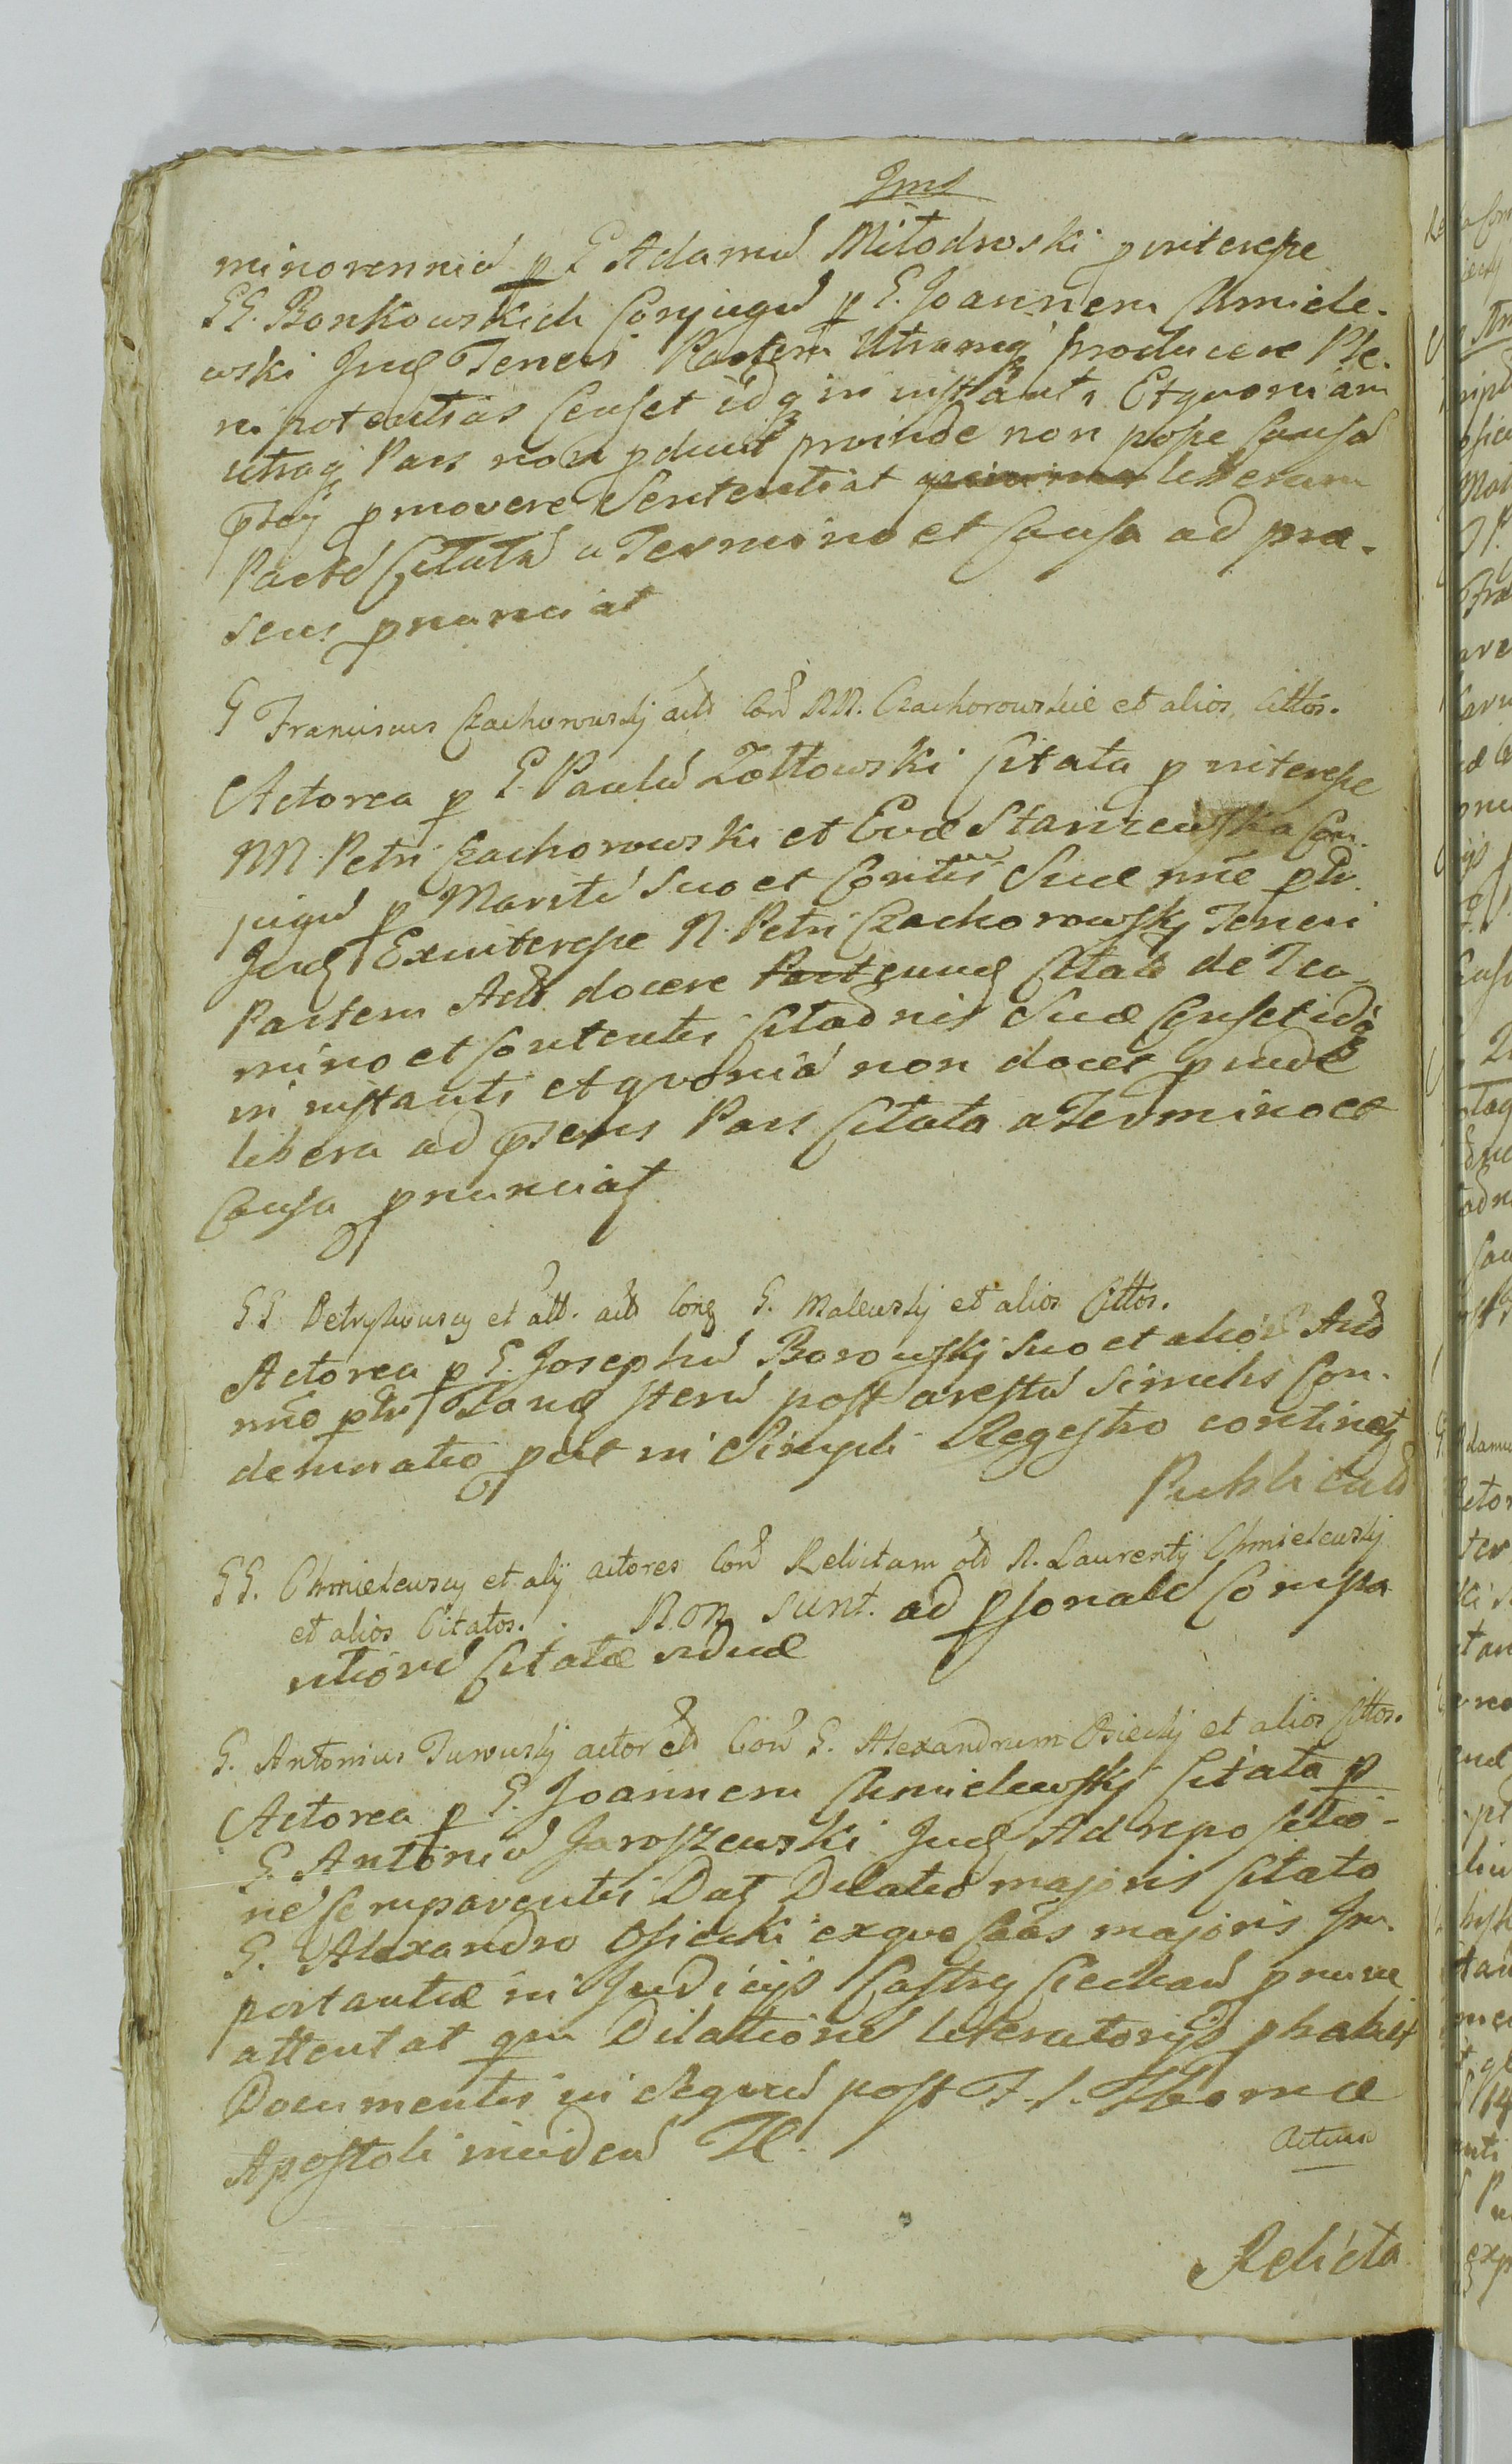 Ims
minorenniū p G Adamū Miłodrowski p interesse
GG. Bonkowskich Conjugū p G. Joannem Chmiele-
wski Jud Teneri Partem Utramq producere Ple-
nipotentias Censet idq in instanti Et quoniam
utraq Pars non pducit proinde non posse Causā
pmovere Sententiat liberam
Partē Citatā a Termino et Causa ad præ-
sens pnunciat
G Franciscus Czachorowskj actor Con NN. Czachorowskie et alios Cittos.
Actorea p G. Paulū Zołtowski Citata p interesse
NN. Petri Czachorowski et Evæ Staniewska Con-
jugū p Maritū Suo et Contlis Suæ nne
Jud Exinteresse N. Petri Czachorowskj Teneri
Partem Act docere Citatō de Ter-
mino et Contentis Citaōnis Suæ Censet idq
in instanti et quoniā non docet pinde
libera ad psens Pars Citata a Termino et
Causa pnunciat
GG et all. act Con G. Malewskj et alios Cittos.
Actorea p G. Josephū Borowskj Suo et alior Act
nne Iterū post arestū Simulis Con-
demnatio put in Simpli Regestro continet
Publicat
GG. Chmielewscy et alij actores Con Relictam olī N. Laurentij Chmielewskj
et alios Citatos. Non sunt. ad psonalē Compa
ritionē Citatæ viduæ
G. Antonius Turowskj actor Con G. Alexandrum Osieckj et alios Cittos.
Actorea p G. Joannem Chmielewskj Citata p
G. Antoniū Jaroszewski Jud Ad repositio-
nē Comparentis Dat Dilatio majoris Citato
G. Alexandro Osiecki exquo Caās majoris Im-
portantiæ in Judicijs Castren Ciechan pnunc
attentat Dilationē literatorijs phabet
Documentis in Seqūen post F. S. Thomæ
Apostoli inciden Tl.
actum
Relicta